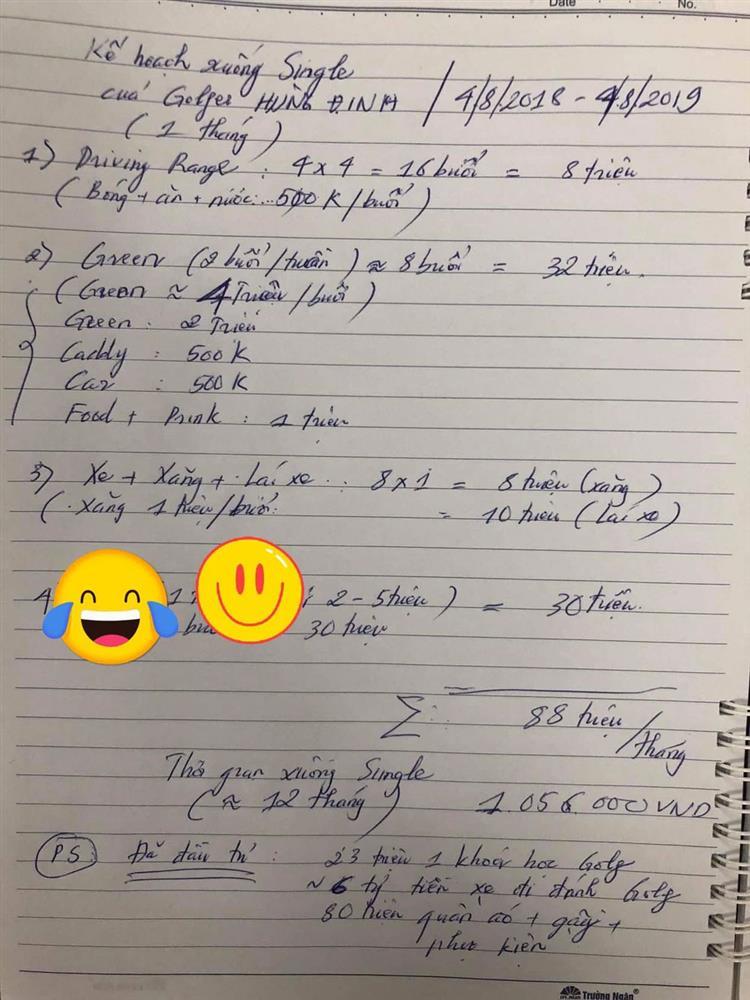 Date No.
Kế hoạch xuống Single
cuả Golfer HÙNG ĐINH / 4/8/2018 - 4/8/2019
( 1 tháng )
1) Driving Range : 4 x 4 = 16 buổi = 8 triệu
( Bóng + ăn + nước... 500 K / buổi )
2) Green (2 buổi/tuần) ≈ 8 buổi = 32 triệu.
( Green ≈ 4 Triệu / buổi )
Green : 2 Triệu
Caddy : 500 K
Car : 500 K
Food + Drink : 1 triệu
3) Xe + Xăng + Lái xe : 8 x 1 = 8 triệu (xăng)
( Xăng 1 triệu / buổi = 10 triệu (Lái xe)
4 (1 : 2 - 5 triệu ) = 30 triệu.
30 triệu
Σ : 88 triệu / tháng
Thời gian xuống Single
( ≈ 12 tháng ) 1.056.000 VND
PS: Đã đầu tư : 23 triệu 1 khoá học Golf
~ 6 tỷ tiền xe đi đánh Golf
80 triệu quần áo + gậy +
phụ kiện
Trường Ngân®